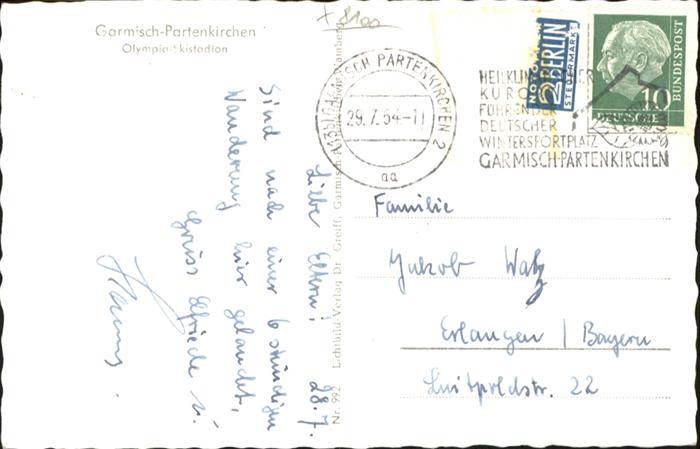 + 8100
Garmisch-Partenkirchen
Olympia-Skistadion
Liebe Eltern! 28.7.
Sind nach einer 6 stündigen
Wanderung hier gelandet,
Gruss Elfriede u.
Hanns.
Nr. 992 Lichtbild-Verlag Dr. Greiff, Garmisch-Partenkirchen
GARMISCH PARTENKIRCHEN 2
29.7.54-11
aa
HEILKLIMATISCHER
KURORT
FÜHRENDER
DEUTSCHER
WINTERSPORTPLATZ
GARMISCH-PARTENKIRCHEN
NOTOPFER
2 BERLIN
STEUERMARKE
10
DEUTSCHE
BUNDESPOST
Familie
Jakob Watz
Erlangen / Bayern
Luitpoldstr. 22